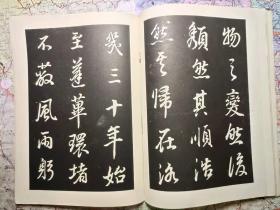 物之變然後
頽然其順浩
然其歸在泳
幾三十年始
至蓬蓽環堵
不蔽風雨躬